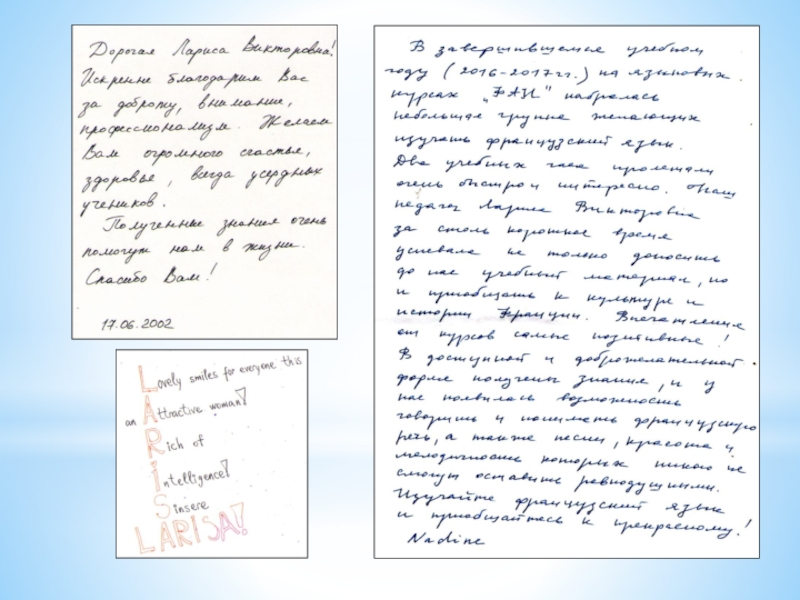 Дорогая Лариса Викторовна!
Искренне благодарим Вас
за доброту, внимание,
профессионализм. Желаем
Вам огромного счастья,
здоровья, всегда усердных
учеников.
Полученные знания очень
помогут нам в жизни.
Спасибо Вам!
17.06.2002
Lovely smiles for everyone this
an Attractive woman!
Rich of
Intelligence!
Sinsere
LARISA!
В завершившемся учебном
году (2016-2017гг.) на языковых
курсах "ФАЦ" набралась
небольшая группа желающих
изучать французский язык.
Два учебных часа пролетали
очень быстро и интересно. Наш
педагог Лариса Викторовна
за столь короткое время
успевала не только доносить
до нас учебный материал, но
и приобщать к культуре и
истории Франции. Впечатления
от курсов самые позитивные!
В доступной и доброжелательной
форме получены знания, и у
нас появилась возможность
говорить и понимать французскую
речь, а также песни, красота и
мелодичность которых никого не
смогут оставить равнодушными.
Изучайте французский язык
и приобщайтесь к прекрасному!
Nadine